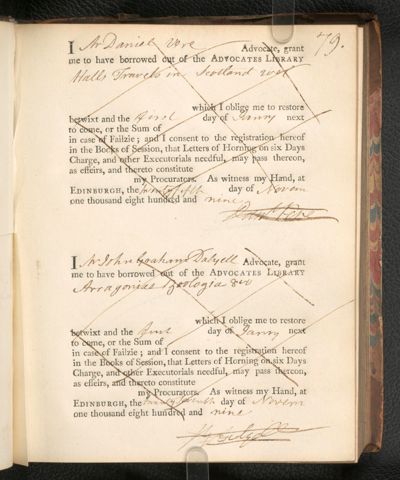 79.
I Mr Daniel Vere Advocate, grant
me to have borrowed out of the ADVOCATES LIBRARY
Halls Travels in Scotland 2 vol
which I oblige me to restore
betwixt and the first day of Janry next
to come, or the Sum of
in case of Failzie; and I consent to the registration hereof
in the Books of Session, that Letters of Horning on six Days
Charge, and other Executorials needful, may pass thereon,
as effeirs, and thereto constitute
my Procurators. As witness my Hand, at
EDINBURGH, the twenty fifth day of Novem
one thousand eight hundred and nine
Danl Vere
I Mr John Graham Dalyell Advocate, grant
me to have borrowed out of the ADVOCATES LIBRARY
Zoologia 8vo
which I oblige me to restore
betwixt and the first day of Janry next
to come, or the Sum of
in case of Failzie; and I consent to the registration hereof
in the Books of Session, that Letters of Horning on six Days
Charge, and other Executorials needful, may pass thereon,
as effeirs, and thereto constitute
my Procurators. As witness my Hand, at
EDINBURGH, the twenty seventh day of Novem
one thousand eight hundred and nine